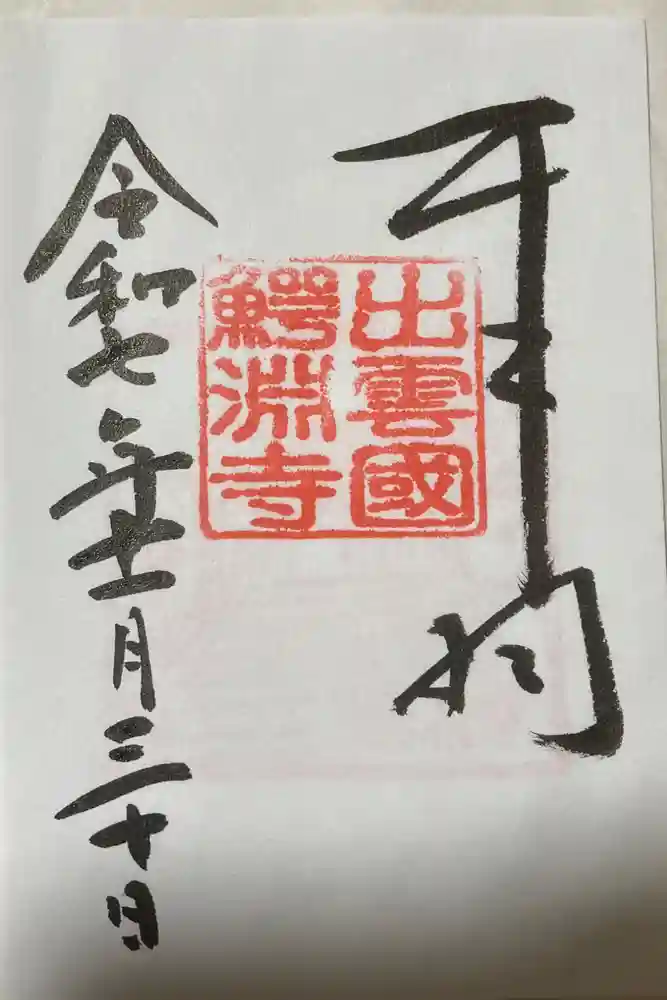 出雲國
鰐淵寺
令和七年十一月三十日